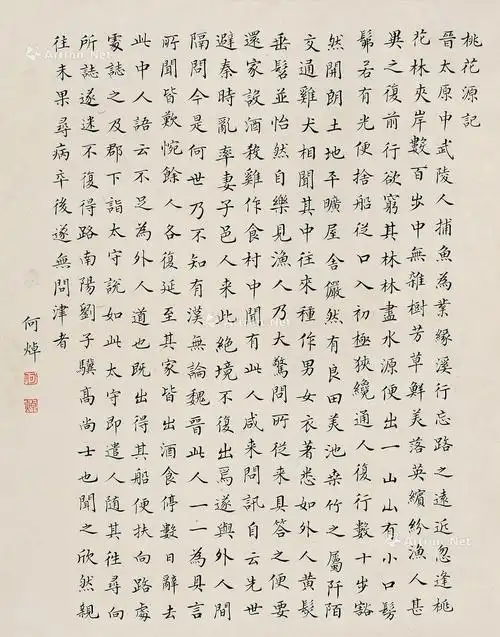 桃花源記
晉太原中武陵人捕魚為業緣溪行忘路之遠近忽逢桃
花林夾岸數百步中無雜樹芳草鮮美落英繽紛漁人甚
異之復前行欲窮其林林盡水源便出一山山有小口髣
髴若有光便捨船從口入初極狹纔通人復行數十步豁
然開朗土地平曠屋舍儼然有良田美池桑竹之屬阡陌
交通雞犬相聞其中往來種作男女衣著悉如外人黃髮
垂髫並怡然自樂見漁人乃大驚問所從來具答之便要
還家設酒殺雞作食村中聞有此人咸来問訊自云先世
避秦時亂率妻子邑人来此絕境不復出焉遂與外人間
隔問今是何世乃不知有漢無論魏晉此人一一為具言
所聞皆歎惋餘人各復延至其家皆出酒食停數日辭去
此中人語云不足為外人道也既出得其船便扶向路處
處誌之及郡下詣太守說如此太守即遣人隨其往尋向
所誌遂迷不復得路南陽劉子驥高尚士也聞之欣然親
往未果尋病卒後遂無問津者
何焯
Artron.Net
Artron.Net
Artron.Net
Artron.Net